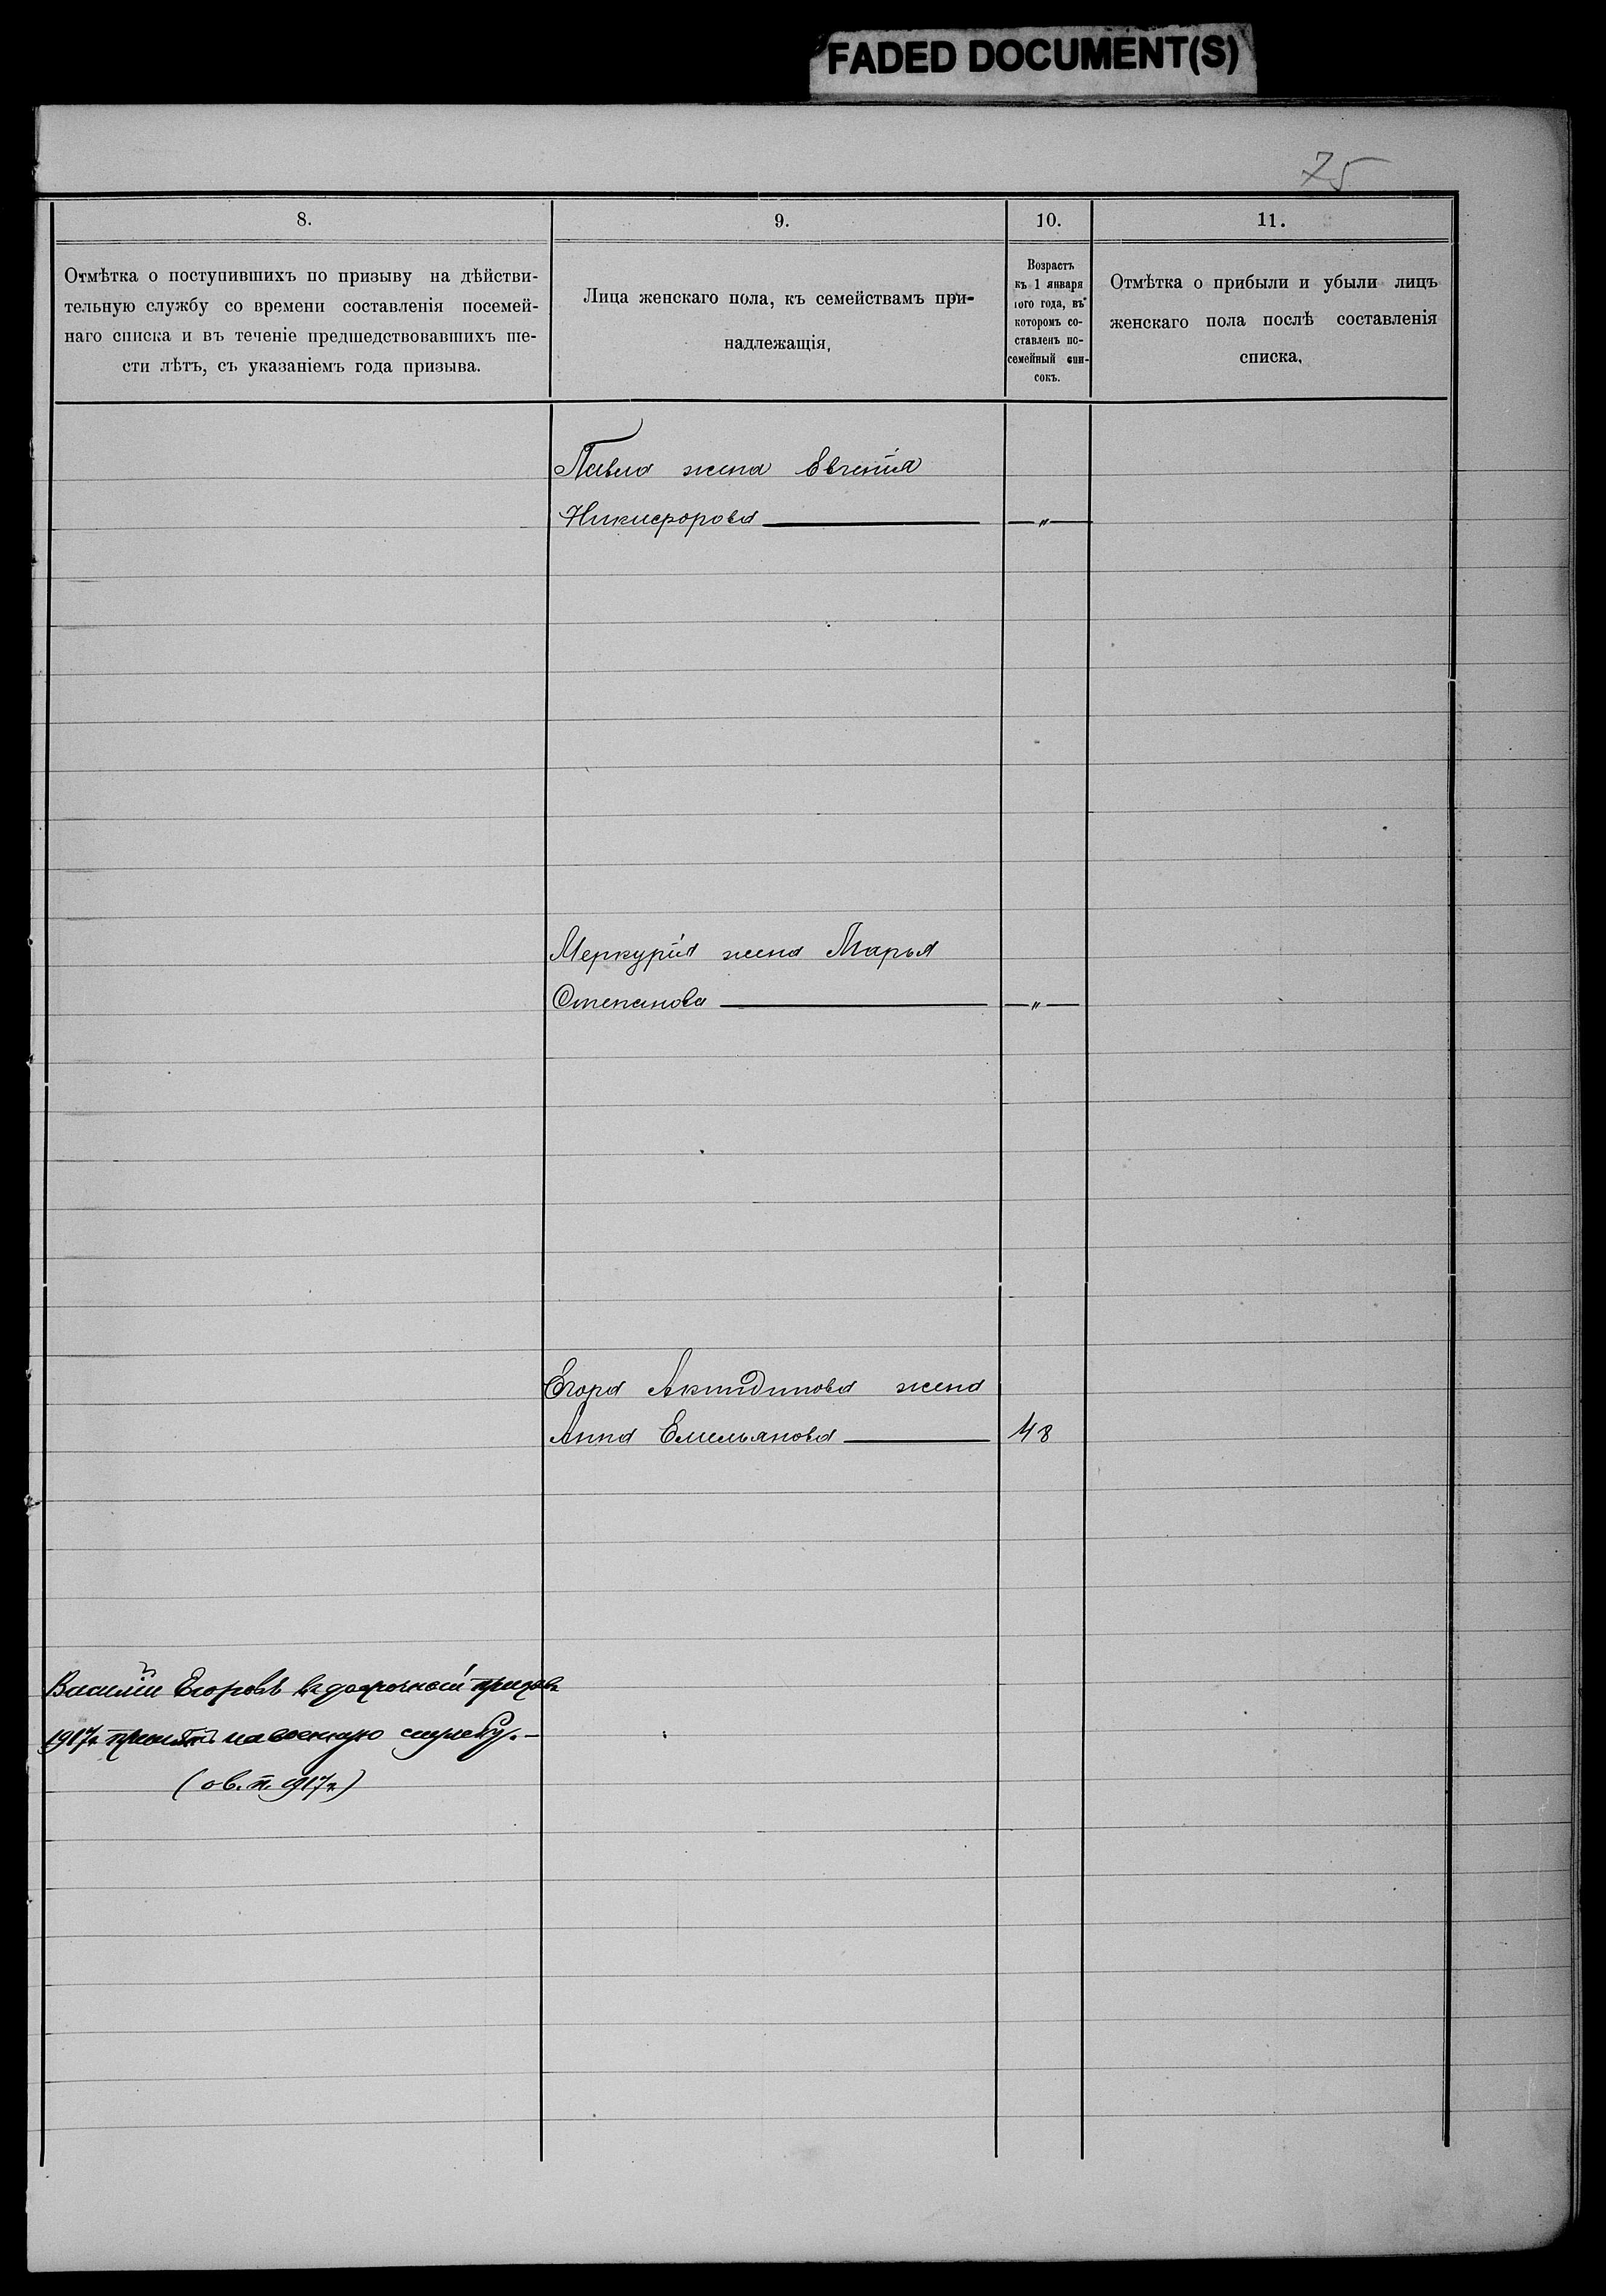 FADED DOCUMENT(S)
75
8.
Отмѣтка о поступившихъ по призыву на дѣйстви-
тельную службу со времени составленія посемей-
наго списка и въ теченіе предшедствовавшихъ ше-
сти лѣтъ, съ указаніемъ года призыва.
9.
Лица женскаго пола, къ семействамъ при-
надлежащія,
10.
Возрастъ
къ 1 января
того года, въ
которомъ со-
ставленъ по-
семейный спи-
сокъ.
11.
Отмѣтка о прибыли и убыли лицъ
женскаго пола послѣ составленія
списка,
Павла жена Евгенія
Никифорова — „ —
Меркурія жена Марья
Степанова — „ —
Егора Акиндинова жена
Анна Емельянова — 48
Василій Егоровъ въ досрочный призывъ
1917г принятъ на военную службу. –
(о в. п. 1917г)